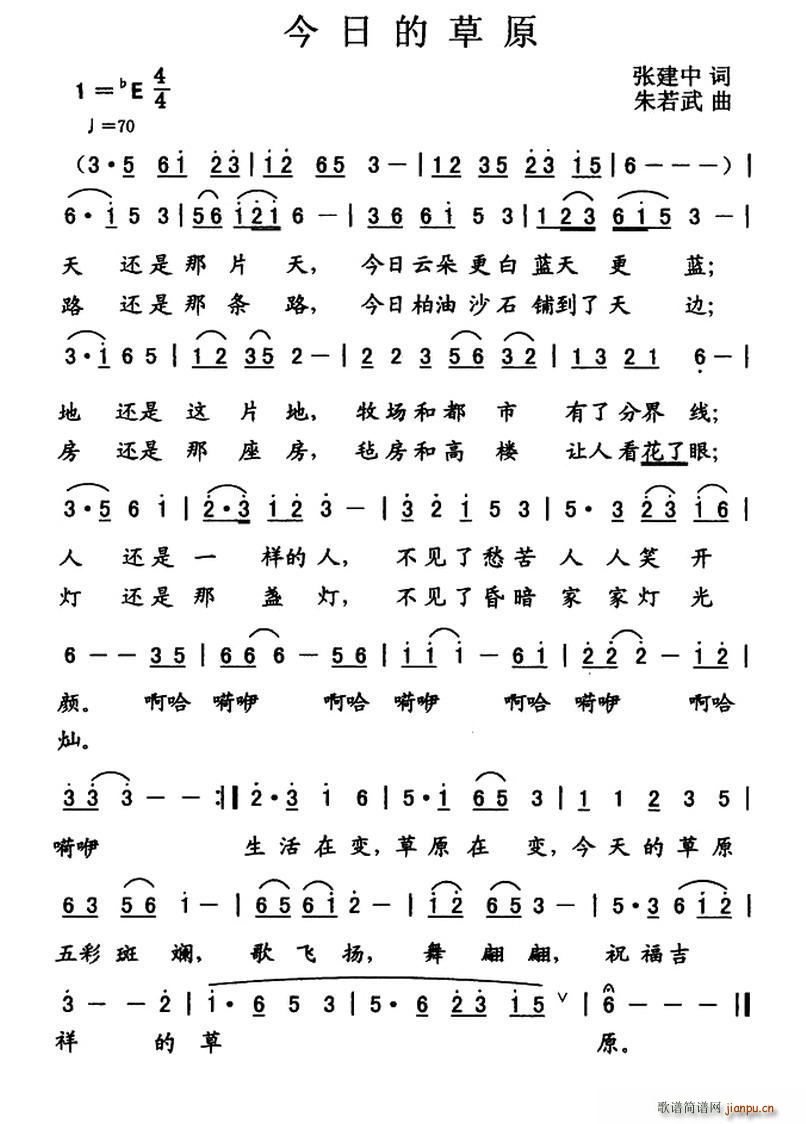 今日的草原
1=♭E 4/4
张建中 词
朱若武 曲
♩=70
(3·5 6i 23|i2 65 3-|12 35 23 i5|6---)|
6·i 5 3|56 i2i 6-|36 6i 5 3|123 6i5 3-|
天 还是那片天， 今日云朵更白蓝天更 蓝；
路 还是那条路， 今日柏油沙石铺到了天 边；
3·i 6 5|12 35 2-|2 2 3 56 32|13 21 6-|
地 还是这片地， 牧场和都市 有了分界线；
房 还是那座房， 毡房和高楼 让人看花了眼；
3·5 6 i|2·3 i2 3-|3 2 i 5 3|5·3 23 i6|
人 还是一 样的人， 不见了愁苦人 人笑开
灯 还是那 盏灯， 不见了昏暗家 家灯光
6--35|66 6-56|ii i-6i|22 2-23|
颜。 啊哈 嗬咿 啊哈 嗬咿 啊哈 嗬咿 啊哈
灿。
33 3--:‖2·3 1 6|5·i 65 3|1 1 2 3 5|
嗬咿 生活在变，草原在 变，今天的草原
63 56 i-|65 6i 2-|i2 65 3-|5·3 6 i2|
五彩斑 斓， 歌飞扬， 舞 翩翩， 祝福吉
3--2|i·6 5 3|5·6 23 i5 ∨|6---‖
祥 的草 原。
歌谱简谱网 jianpu.cn